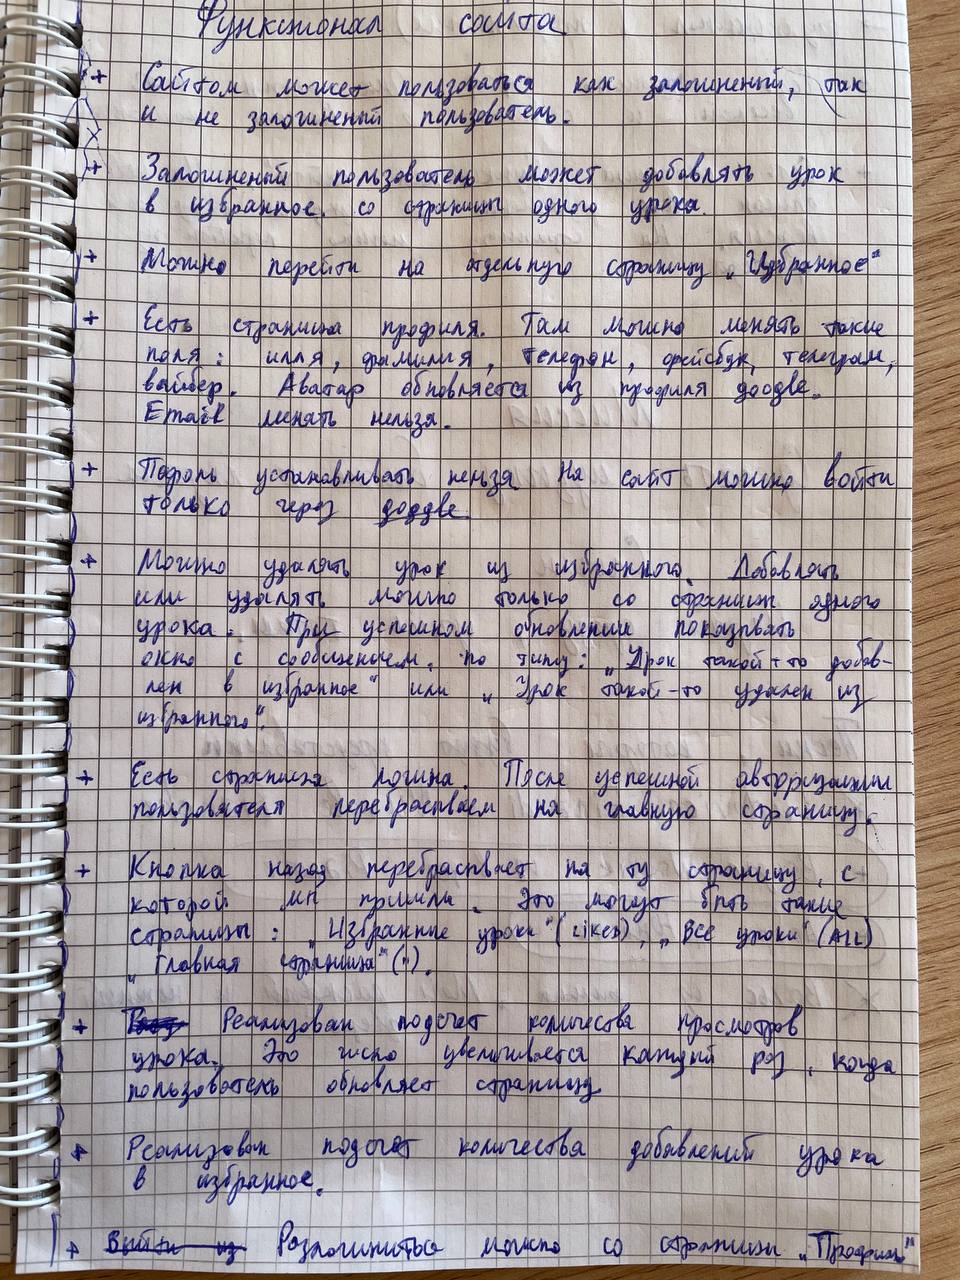 Функционал сайта
+ Сайтом может пользоваться как залогиненый, так
и не залогиненый пользователь.
+ Залогиненый пользователь может добавлять урок
в избранное. со страницы одного урока.
+ Можно перейти на отдельную страницу „Избранное"
+ Есть страница профиля. Там можно менять такие
поля: имя, фамилия, телефон, фейсбук, телеграм,
вайбер. Аватар обновляется из профиля
Email менять нельзя.
+ Пароль устанавливать нельзя На сайт можно войти
только через
+ Можно удалять урок из избранного. Добавлять
или удалять можно только со страницы одного
урока. При успешном обновлении показывать
окно с сообщением, по типу: „Урок такой-то добав-
лен в избранное" или „Урок такой-то удален из
избранного".
+ Есть страница логина. После успешной авторизации
пользователя перебрасываем на главную страницу.
+ Кнопка назад перебрасывает на ту страницу, с
которой мы пришли. Это могут быть такие
страницы: „Избранные уроки" (likes), „Все уроки" (All)
„Главная страница" (/).
+ Реализован подсчет количества просмотров
урока. Это число увеличивается каждый раз, когда
пользователь обновляет страницу
+ Реализован подсчет количества добавлений урока
в избранное.
+ Выйти из Разлогиниться можно со страницы „Профиль"